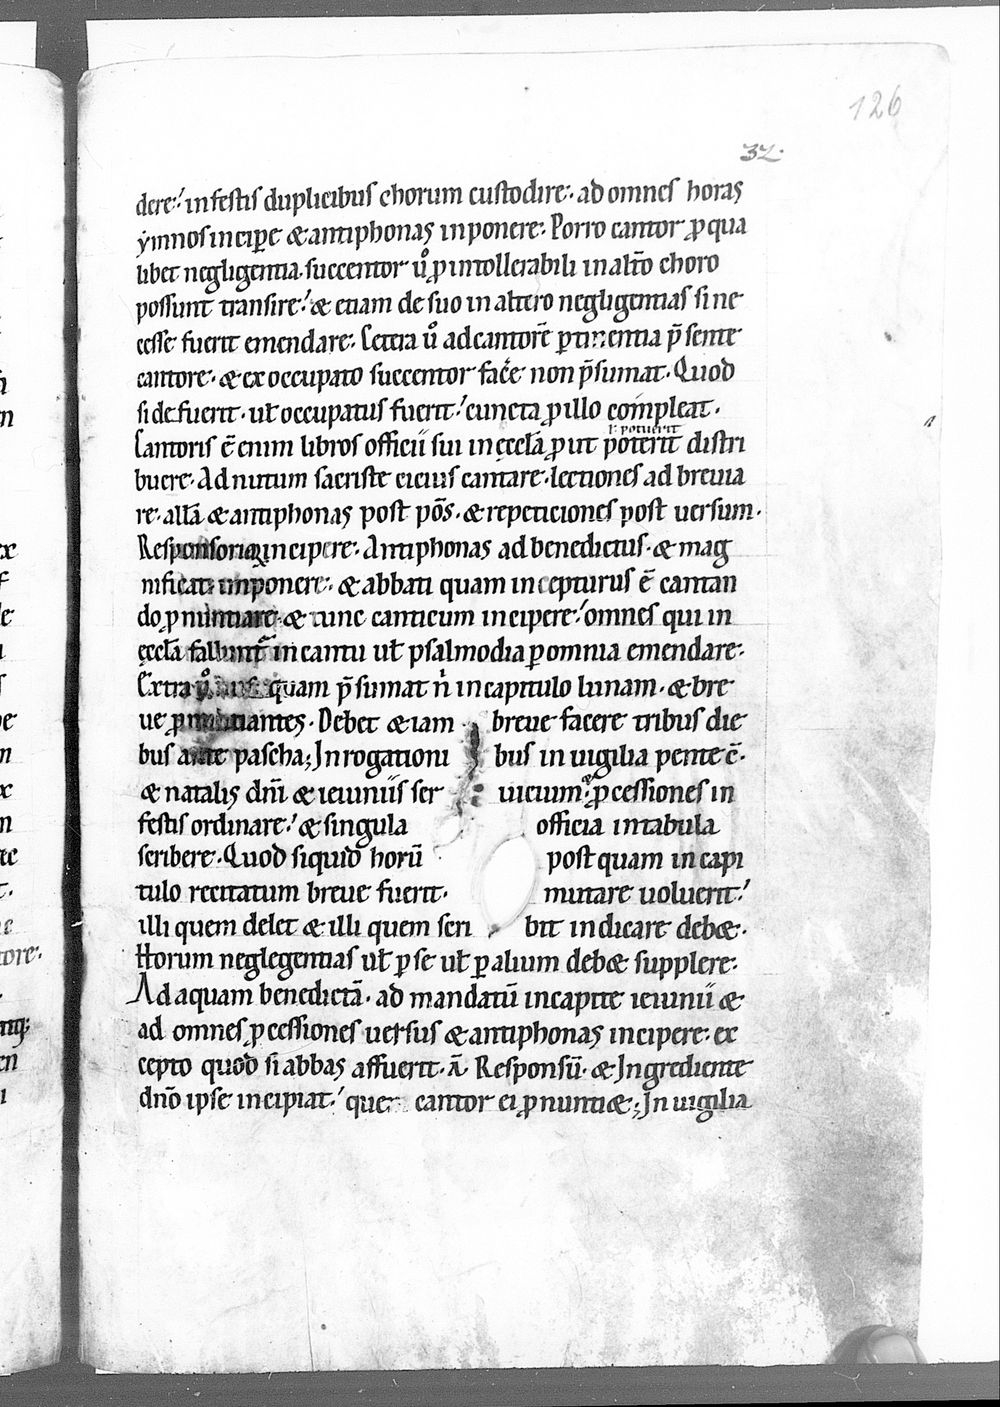 126
32.
dere: in festis duplicibus chorum custodire. ad omnes horas
ẏmnos incip̱e & antiphonas inponere. Porro cantor ꝓ qua
libet negligentia. succentor u̾o ꝓ intollerabili in alt̄o choro
possunt transire: & etiam de suo in altero negligentias si ne
cesse fuerit emendare. Cetera u̾o ad cantorē ꝑtinentia p̄sente
cantore. & ex occupato succentor fac̄e non p̄sumat. Quod
si defuerit. ut̄ occupatus fuerit: cuncta ꝓ illo compleat.
ł potuerit
Cantoris ē enim libros officii sui in ęccl̄a ꝓ ut poterit distri
buere. Ad nutum sacriste cicius cantare. lectiones ad breuia
re. all̄a & antiphonas post pōs. & repeticiones post uersum.
Responsoria incipere. Antiphonas ad benedictus. & mag
nificat imponere. & abbati quam incepturus ē cantan
do ꝓnuntiare. & tunc canticum incipere: omnes qui in
ęccl̄a fallunt̄ in cantu ut̄ psalmodia ꝑ omnia emendare.
Extra u̾o quam p̄sumat n̄ in capitulo lunam. & bre
ue ꝓnuntiantes. Debet & iam breue facere tribus die
bus ante pascha; In rogationi bus in uigilia pente ē.
& natalis dn̄i & ieiuniis ser uicium. ꝓcessiones in
festis ordinare: & singula officia in tabula
scribere. Quod si quid horū post quam in capi
tulo recitatum breue fuerit. mutare uoluerit:
illi quem delet & illi quem scri bit indicare deb&.
Horum neglegentias ut̄ ꝑ se ut̄ ꝑ alium deb& supplere.
Ad aquam benedictā. ad mandatū in capite ieiunii &
ad omnes ꝓcessiones uersus & antiphonas incipere. ex
cepto quod si abbas affuerit. ā. Responsū. & Ingrediente
dn̄o ipse incipiat: que cantor ei ꝓnunti&; In uigilia